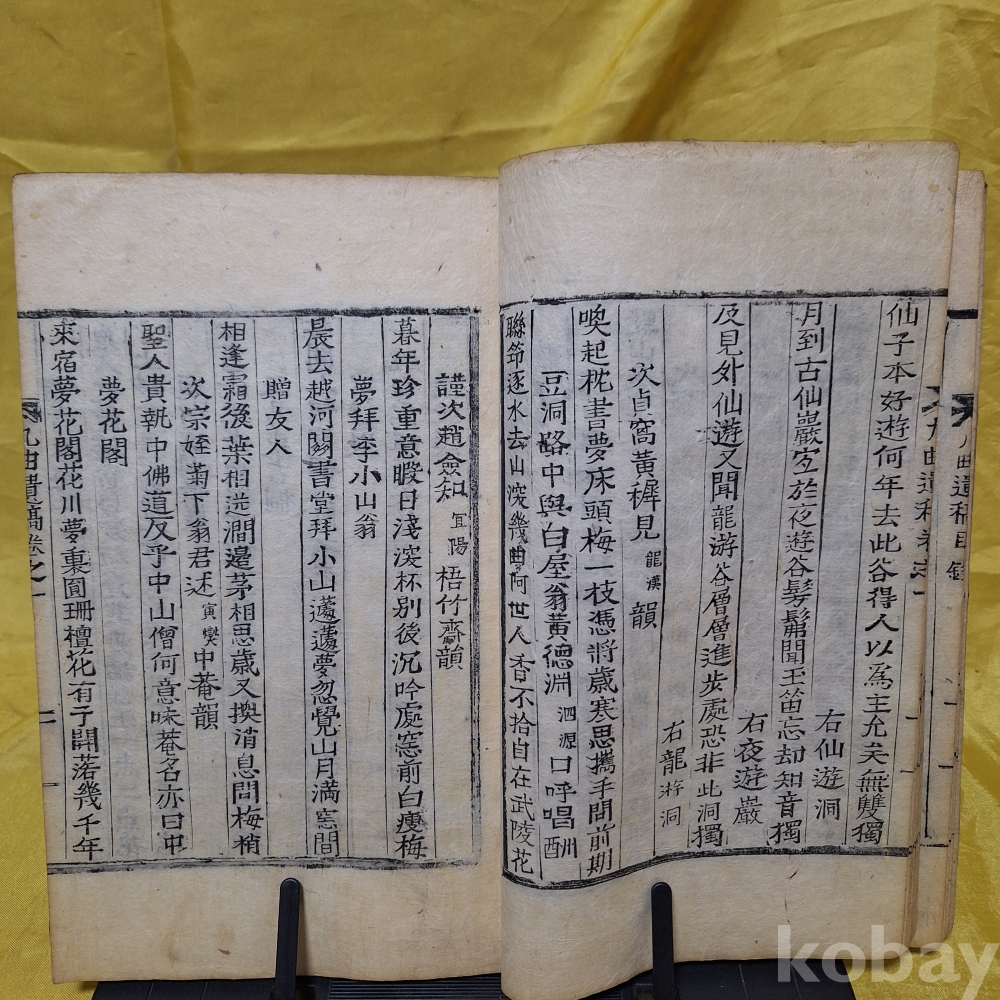 仙子本好遊何年去此谷得人以爲主允矣無雙獨
右仙遊洞
月到古仙巖宜於夜遊谷髣髴聞玉笛忘却知音獨
右夜遊巖
及見外仙遊又聞龍游谷層層進步處恐非此洞獨
右龍游洞
次貞窩黃穉見龍漢韻
喚起枕書夢床頭梅一枝憑將歲寒思攜手問前期
豆洞路中與白屋翁黃德淵泗源口呼唱酬
聯筇逐水去山深幾曲阿世人香不拾自在武陵花
謹次趙僉知宜陽梧竹齋韻
暮年珍重意暇日淺深杯別後沉吟處窓前白瘦梅
夢拜李小山翁
晨去越河關書堂拜小山蘧蘧夢忽覺山月滿窓間
贈友人
相逢霜後葉相送澗邊茅相思歲又換消息問梅梢
次宗姪菊下翁君述寅燮中菴韻
聖人貴執中佛道反乎中山僧何意味菴名亦曰中
夢花閣
來宿夢花閣花川夢裏圓珊檀花有子開落幾千年
九曲遺稿卷之一
九曲遺稿卷之一
曲遺稿目錄
kobay